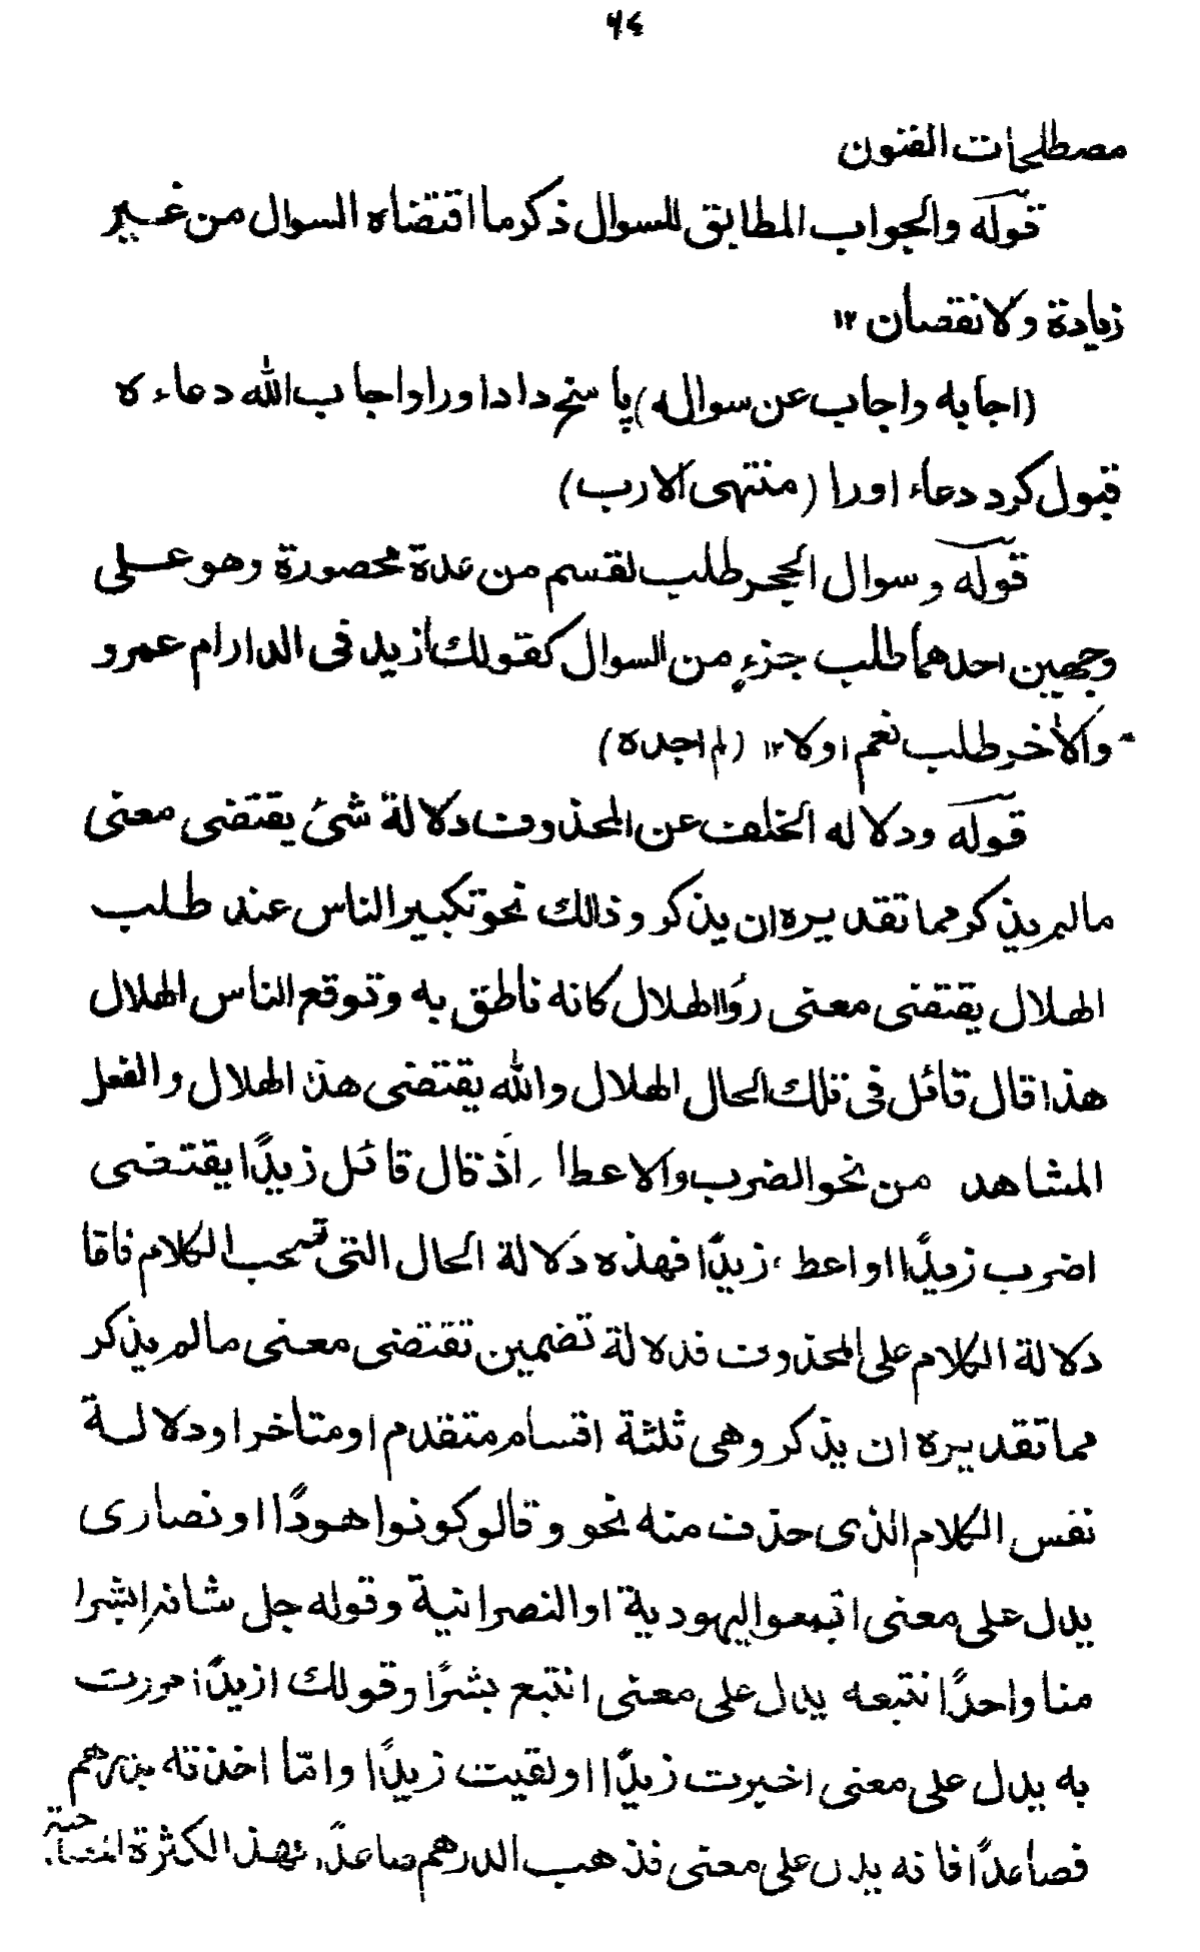 ٦٤
مصطلحات الفنون
قوله والجواب المطابق للسوال ذكر ما اقتضاه السوال من غير
زيادة ولا نقصان ١٢
(اجابه واجاب عن سواله) پاسخ داد اورا واجاب الله دعاءه
قبول كرد دعاء اورا (منتهى الارب)
قوله وسوال الحجر طلب لقسم من عدة محصورة وهو على
وجهين احدهما طلب جزء من السوال كقولك ازيد فى الدار ام عمرو
والأخر طلب نعم اولا ١٢ (لم اجده)
قوله ودلاله الخلف عن المحذوف دلالة شئ يقتضى معنى
مالم يذكر مما تقديره ان يذكر وذالك نحو تكبير الناس عند طلب
الهلال يقتضى معنى رؤا الهلال كانه ناطق به وتوقع الناس الهلال
هذا قال قائل فى تلك الحال الهلال والله يقتضى هذا الهلال والفعل
المشاهد من نحو الضرب والاعطاء اذ قال قائل زيدًا يقتضى
اضرب زيدًا او اعط زيدًا فهذه دلالة الحال التى تصحب الكلام فاقا
دلالة الكلام على المحذوف فدلالة تضمين تقتضى معنى مالم يذكر
مما تقديره ان يذكر وهى ثلثة اقسام متقدم او متاخر او دلالة
نفس الكلام الذى حذف منه نحو وقالو كونوا هودًا او نصارى
يدل على معنى اتبعوا اليهودية او النصرانية وقوله جل شانه ابشرا
منا واحدًا نتبعه يدل على معنى انتبع بشرًا وقولك ازيدًا مررت
به يدل على معنى اخبرت زيدًا او لقيت زيدًا واما اخذته بدرهم
فصاعدًا فانه يدل على معنى فذهب الدرهم صاعدًا فهذ الكثرة